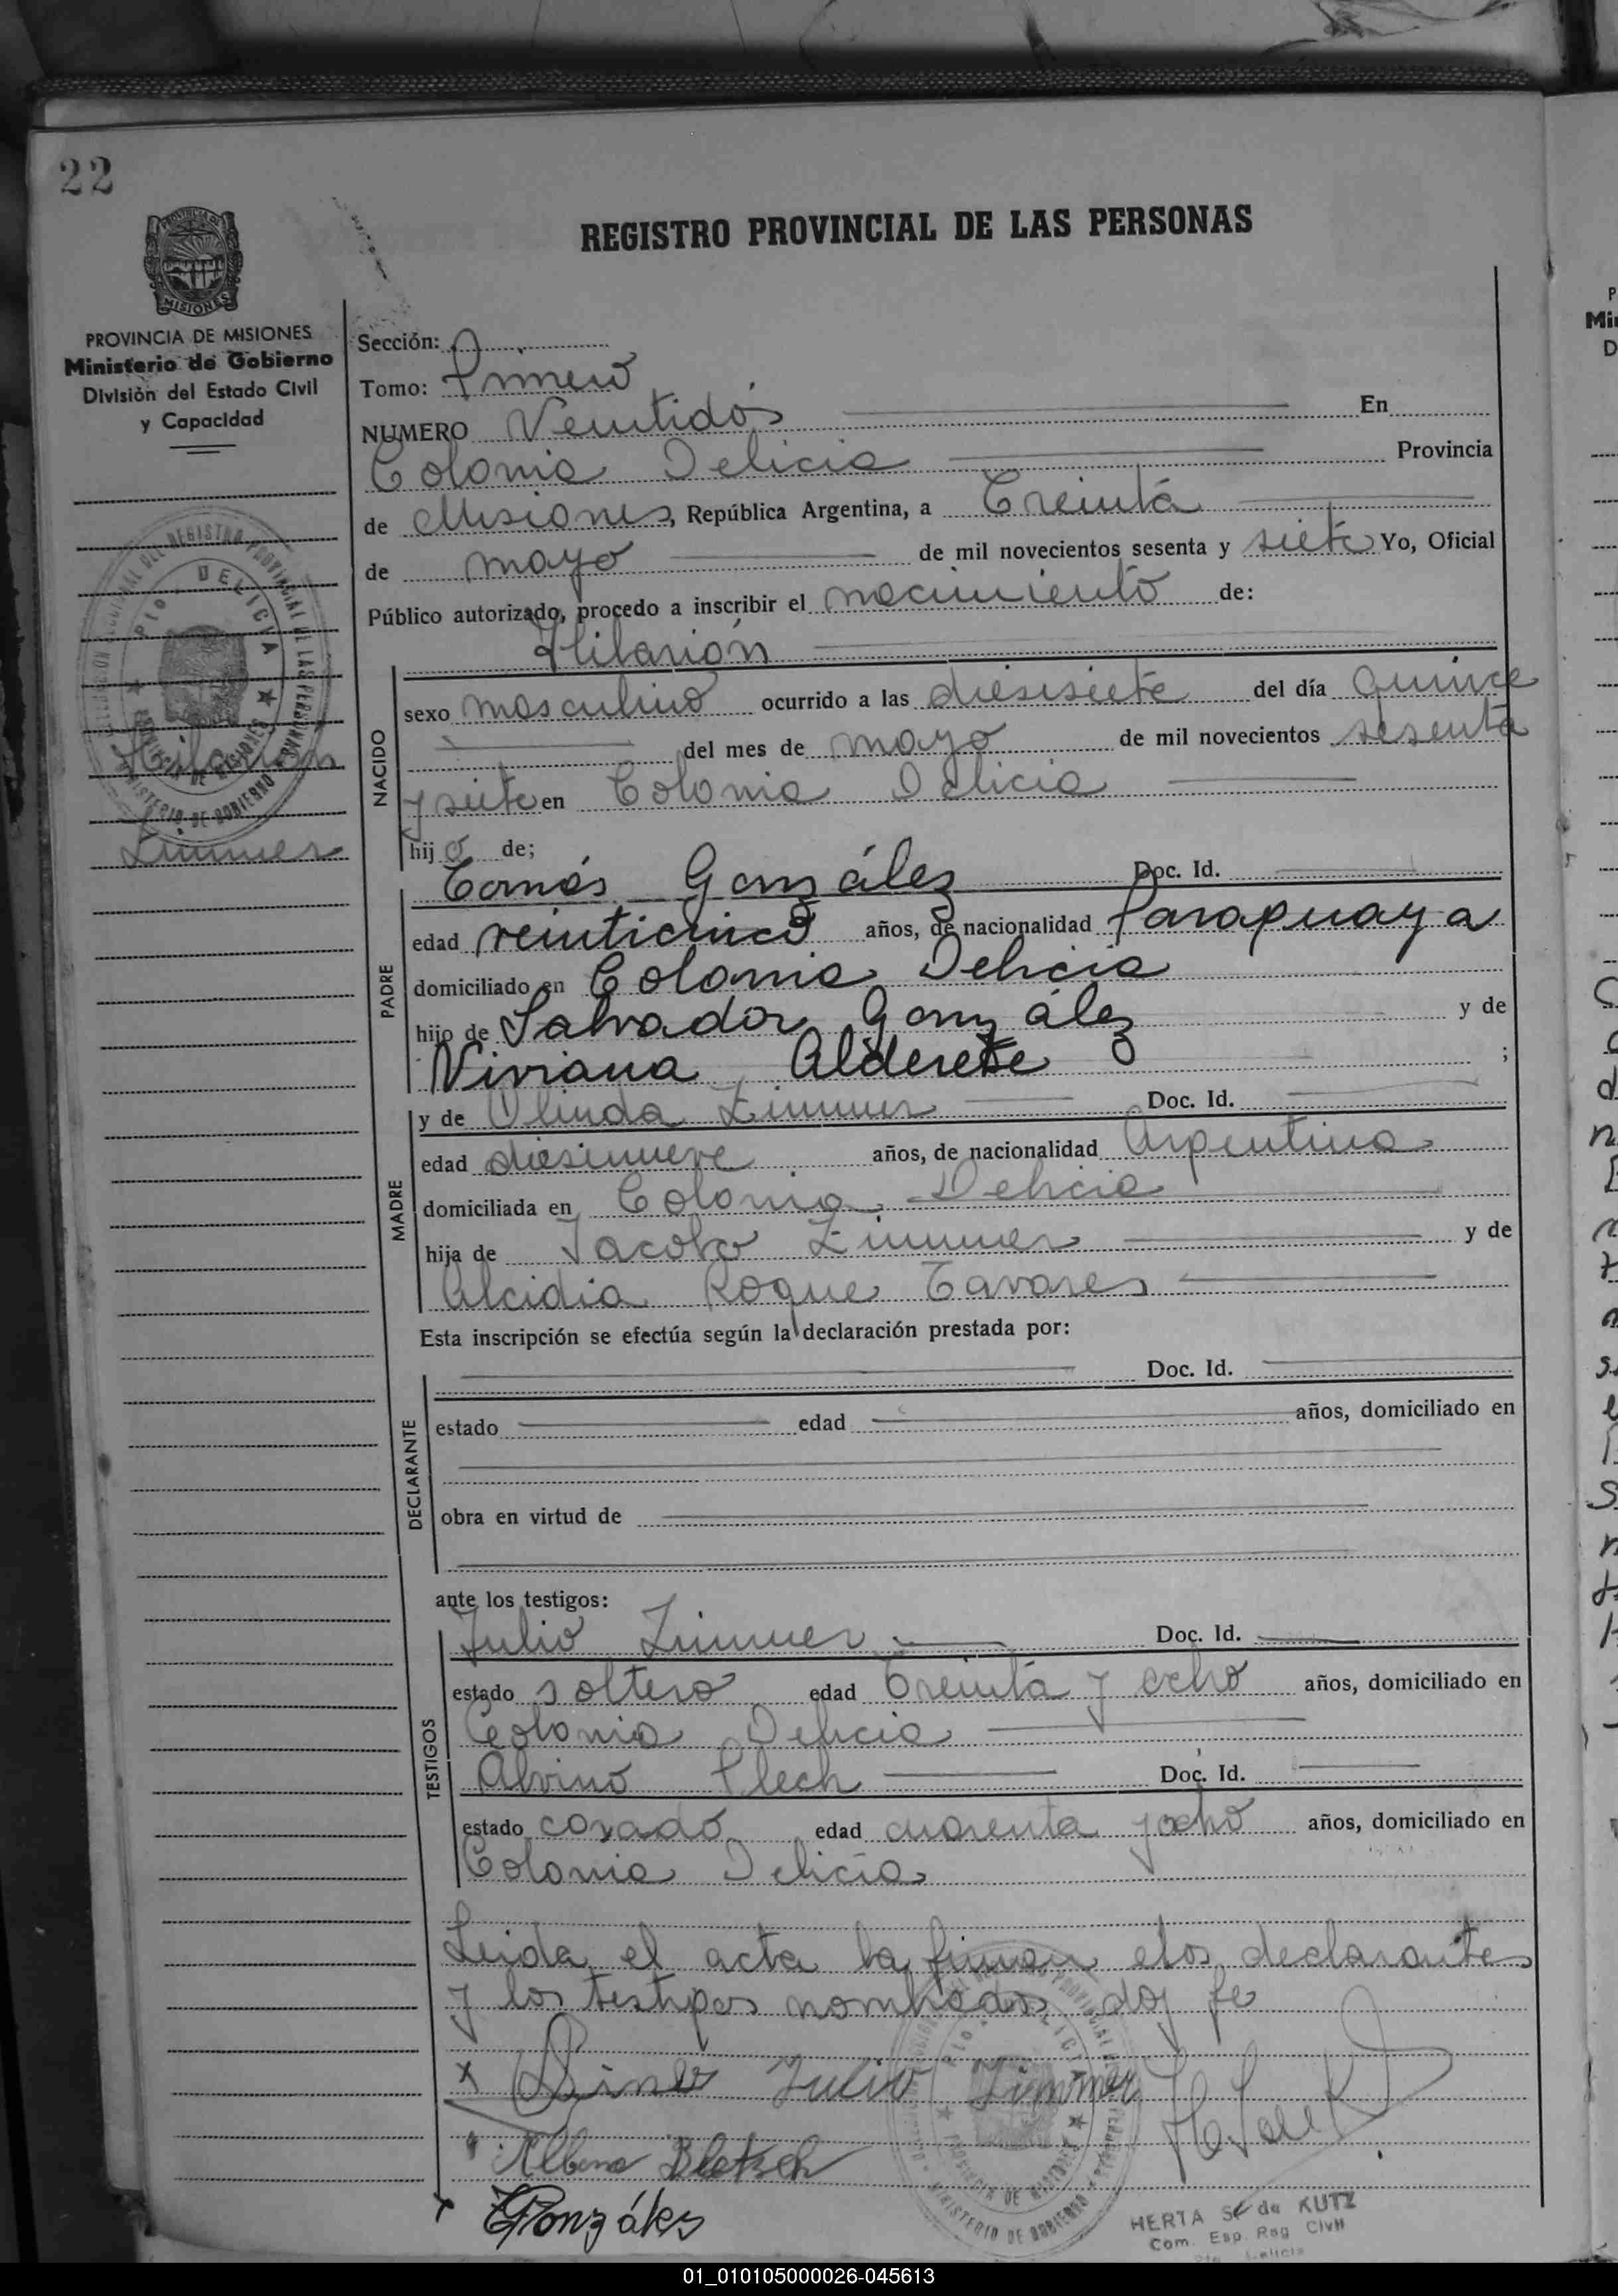 22
REGISTRO PROVINCIAL DE LAS PERSONAS
PROVINCIA DE MISIONES
MISIONES
PROVINCIA DE MISIONES
Ministerio de Gobierno
División del Estado Civil
y Capacidad
Hilarión
Zimmer
Sección:
Tomo: Primero
NUMERO Veintidós En
Colonia Delicia Provincia
de Misiones, República Argentina, a Treinta
de mayo de mil novecientos sesenta y siete Yo, Oficial
Público autorizado, procedo a inscribir el nacimiento de:
Hilarión
NACIDO
sexo masculino ocurrido a las diesisiete del día quince
del mes de mayo de mil novecientos sesenta
y siete en Colonia Delicia
hijo de;
PADRE
Tomás González Doc. Id.
edad veinticinco años, de nacionalidad Paraguaya
domiciliado en Colonia Delicia
hijo de Salvador González y de
Viviana Alderete ;
MADRE
y de Olinda Zimmer Doc. Id.
edad diesinueve años, de nacionalidad Argentina
domiciliada en Colonia Delicia
hija de Jacobo Zimmer y de
Alcidia Roque Tavares
Esta inscripción se efectúa según la declaración prestada por:
DECLARANTE
Doc. Id.
estado edad años, domiciliado en
obra en virtud de
ante los testigos:
TESTIGOS
Julio Zimmer Doc. Id.
estado soltero edad Treinta y ocho años, domiciliado en
Colonia Delicia
Alvino Plech Doc. Id.
estado casado edad cuarenta y ocho años, domiciliado en
Colonia Delicia
Leida el acta la firman el los declarantes
y los testigos nombrados doy fe
x Julio Zimmer
Albino Bletsch
x González
HERTA S. de KUTZ
Com. Esp. Reg Civil
Pto. Delicia
01_010105000026-045613